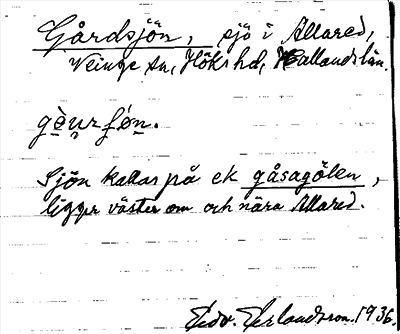 Gårdsjön, sjö i Allared,
Veinge sn, Höks hd, Hallands län.
gèʋrʃón.
Sjön kallas på ek gåsagölen,
ligger väster om och nära Allared.
Edv. Erlandsson. 1936.